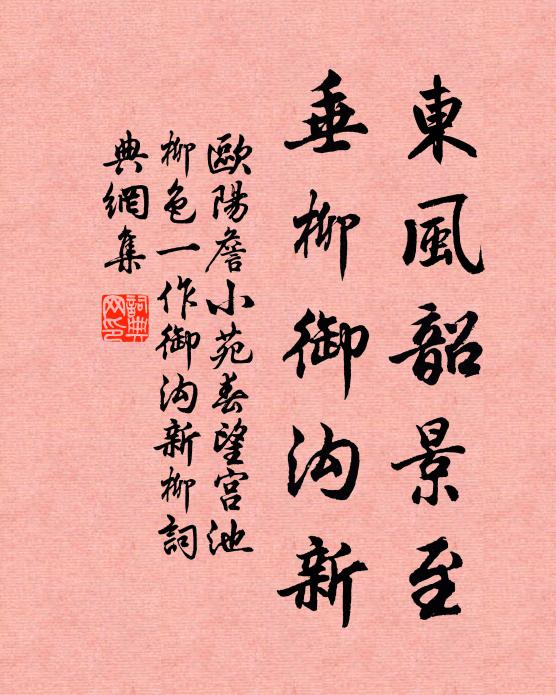 東風韶景至
垂柳御沟新
歐陽詹小苑春望宮池
柳色一作御沟新柳詞
典網集
詞典
网印